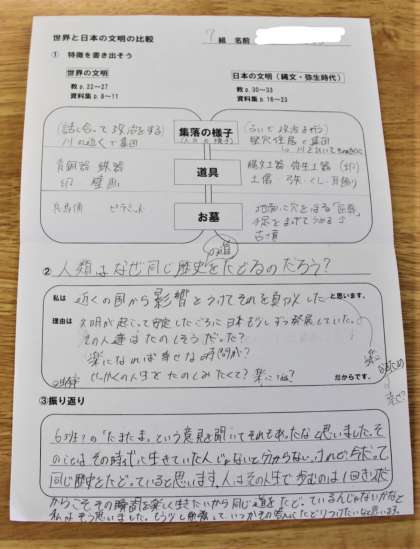 世界と日本の文明の比較
7 組 名前
① 特徴を書き出そう
世界の文明
教 p.22~27
資料集 p.8~11
日本の文明（縄文・弥生時代）
教 p.30~33
資料集 p.16~23
集落の様子
(話し合って政治をする)
川の近くで集団
竪穴住居で集団
道具
青銅器 鉄器
印 壁画
縄文土器 弥生土器
土偶
お墓
兵馬俑 ピラミッド
地面に穴をほる
古墳
② 人類はなぜ同じ歴史をたどるのだろう？
私は 近くの国から影響をうけてそれを真似した と思います。
理由は 文明が起こって安定したころに日本も少しずつ発展していた。
の人達はたのしそうだった？
楽になれば幸せな時間が？
せっかくの人生をたのしみたくて？
だからです。
③振り返り
6班の「たまたま」という意見を聞いてそれもあったなと思いました。そ
のことはその時代に生きていた人じゃないと分からない。けれど今だって
同じ歴史をたどっていると思います。人はその人生で歩むのは1回きりだ
からこそその瞬間を楽しく生きたいから同じ道をたどっているんじゃないかなと
私はそう思いました。もう少し勉強して、いつかその答えにたどりつけたいなと思います。